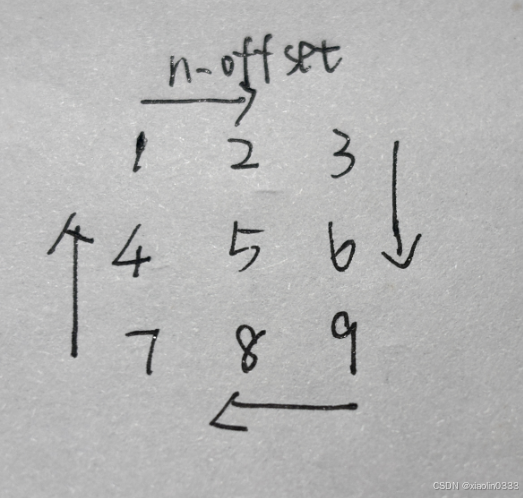 n-offset
1 2 3
4 5 6
7 8 9
CSDN @xiaolin0333